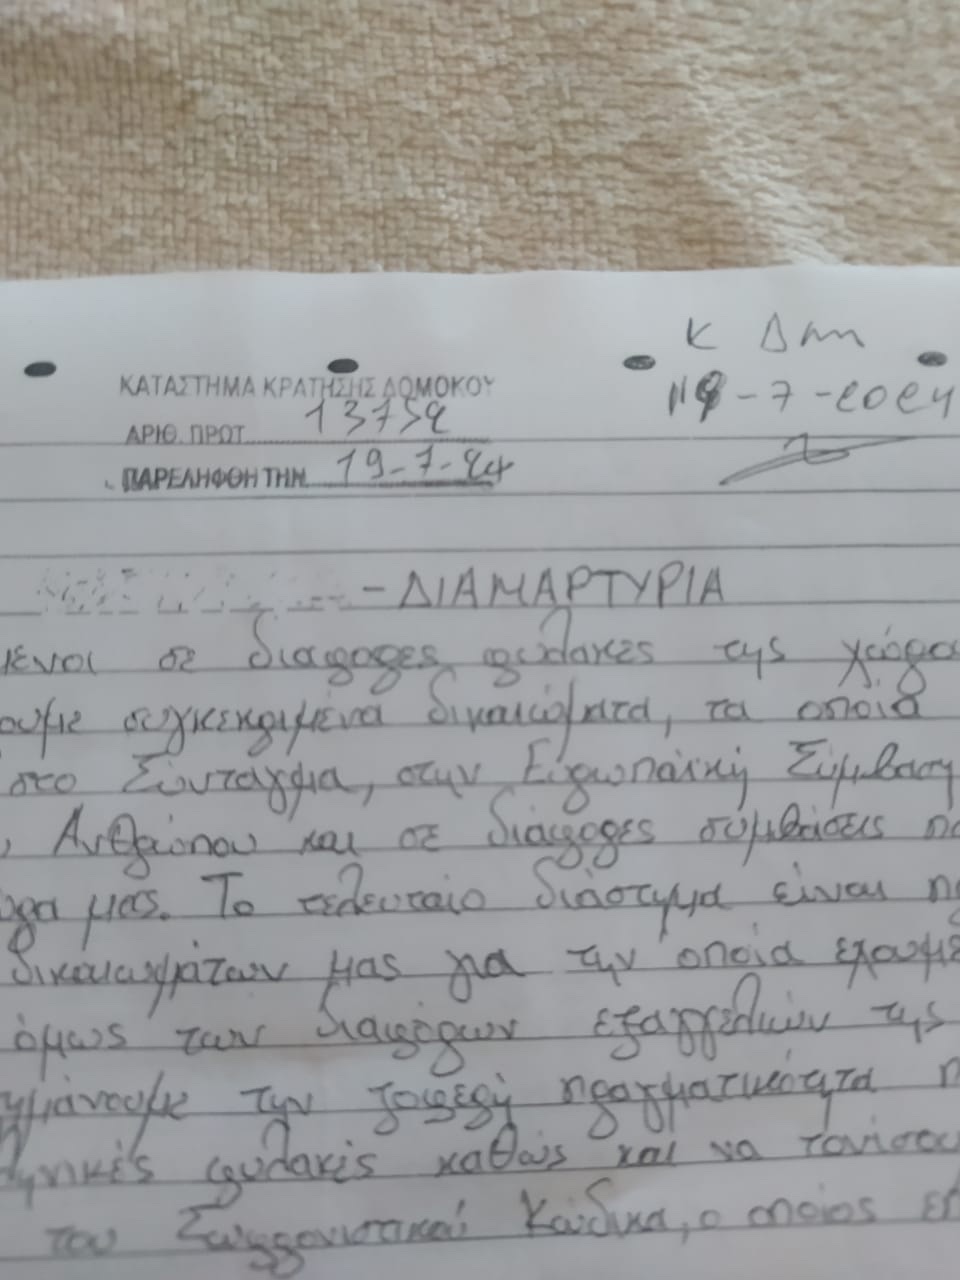 Κ Δ
ΚΑΤΑΣΤΗΜΑ ΚΡΑΤΗΣΗΣ ΔΟΜΟΚΟΥ
19-7-2024
ΑΡΙΘ. ΠΡΩΤ. 13752
ΠΑΡΕΛΗΦΘΗ ΤΗΝ 19-7-24
-ΔΙΑΜΑΡΤΥΡΙΑ
μενοι σε διάφορες φυλακές της χώρα
ουμε συγκεκριμένα δικαιώματα, τα οποία
στο Σύνταγμα, στην Ευρωπαϊκή Σύμβαση
Ανθρώπου και σε διάφορες συμβάσεις
ώρα μας. Το τελευταίο διάστημα είναι
δικαιωμάτων μας για την οποία έχουμε
όμως των διαφόρων εξαγγελιών της
την ζοφερή πραγματικότητα
φυλακές καθώς και να τονίσου
του Σωφρονιστικού Κώδικα, ο οποίος